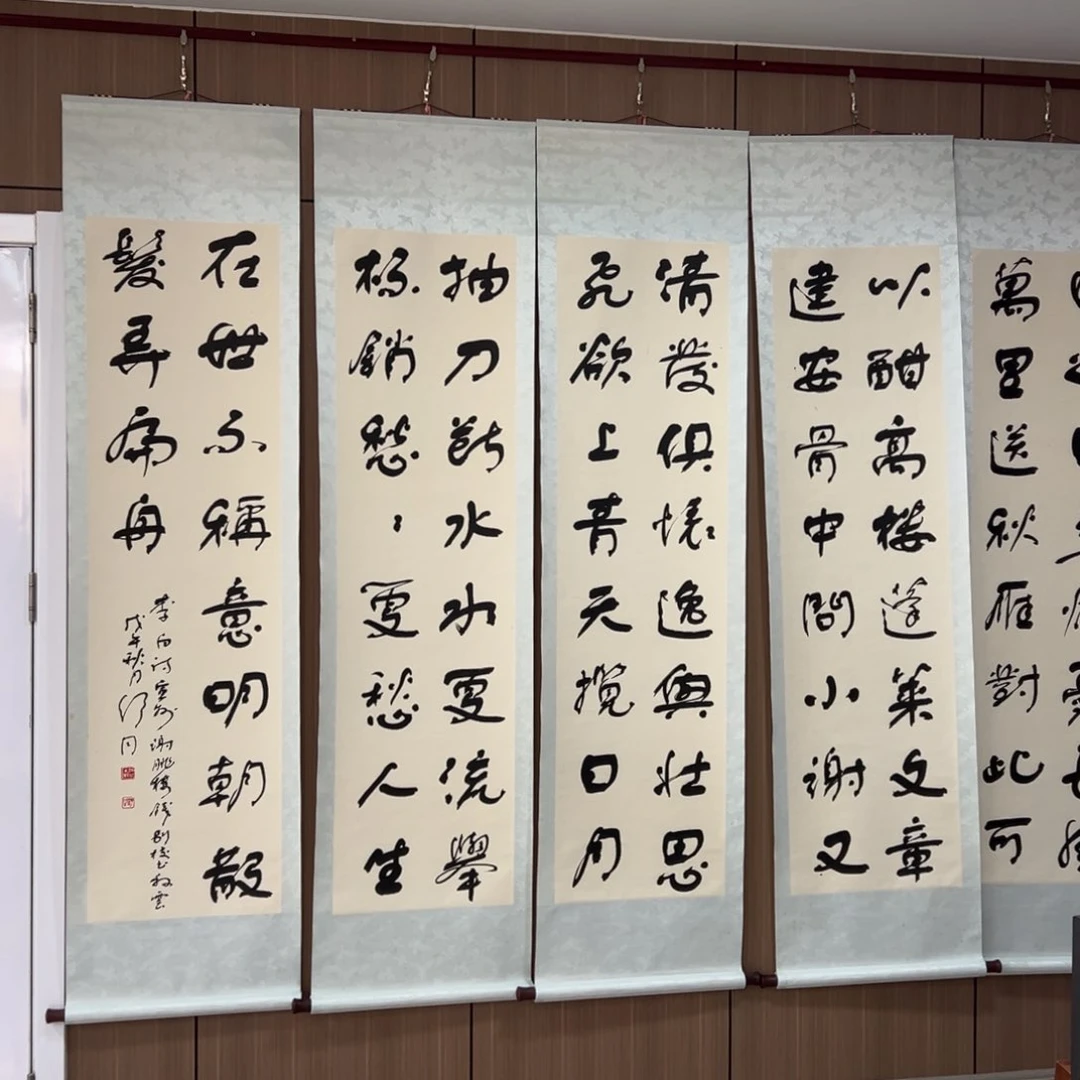 萬里送秋雁對此可
以酣高樓蓬萊文章
建安骨中間小謝又
清發俱懷逸興壯思
飛欲上青天攬日月
抽刀斷水水更流舉
杯銷愁〻更愁人生
在世不稱意明朝散
髮弄扁舟
李白詩宣州謝朓樓餞別校書叔雲
戊午秋月舒同